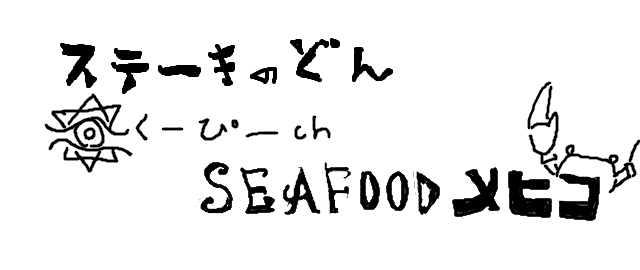 ステーキのどん
くーぴーch
SEAFOODメヒコ